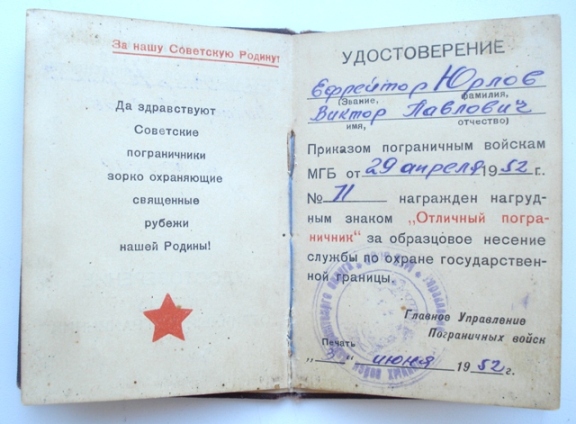 За нашу Советскую Родину!
Да здравствуют
Советские
пограничники
зорко охраняющие
священные
рубежи
нашей Родины!
УДОСТОВЕРЕНИЕ
Ефрейтор Юрлов
(звание, фамилия,
Виктор Павлович
имя, отчество)
Приказом пограничным войскам
МГБ от 29 апреля 1952 г.
№ 11 награжден нагруд-
ным знаком „Отличный погра-
ничник" за образцовое несение
службы по охране государствен-
ной границы.
Главное Управление
Пограничных войск
Печать
„ " июня 1952 г.